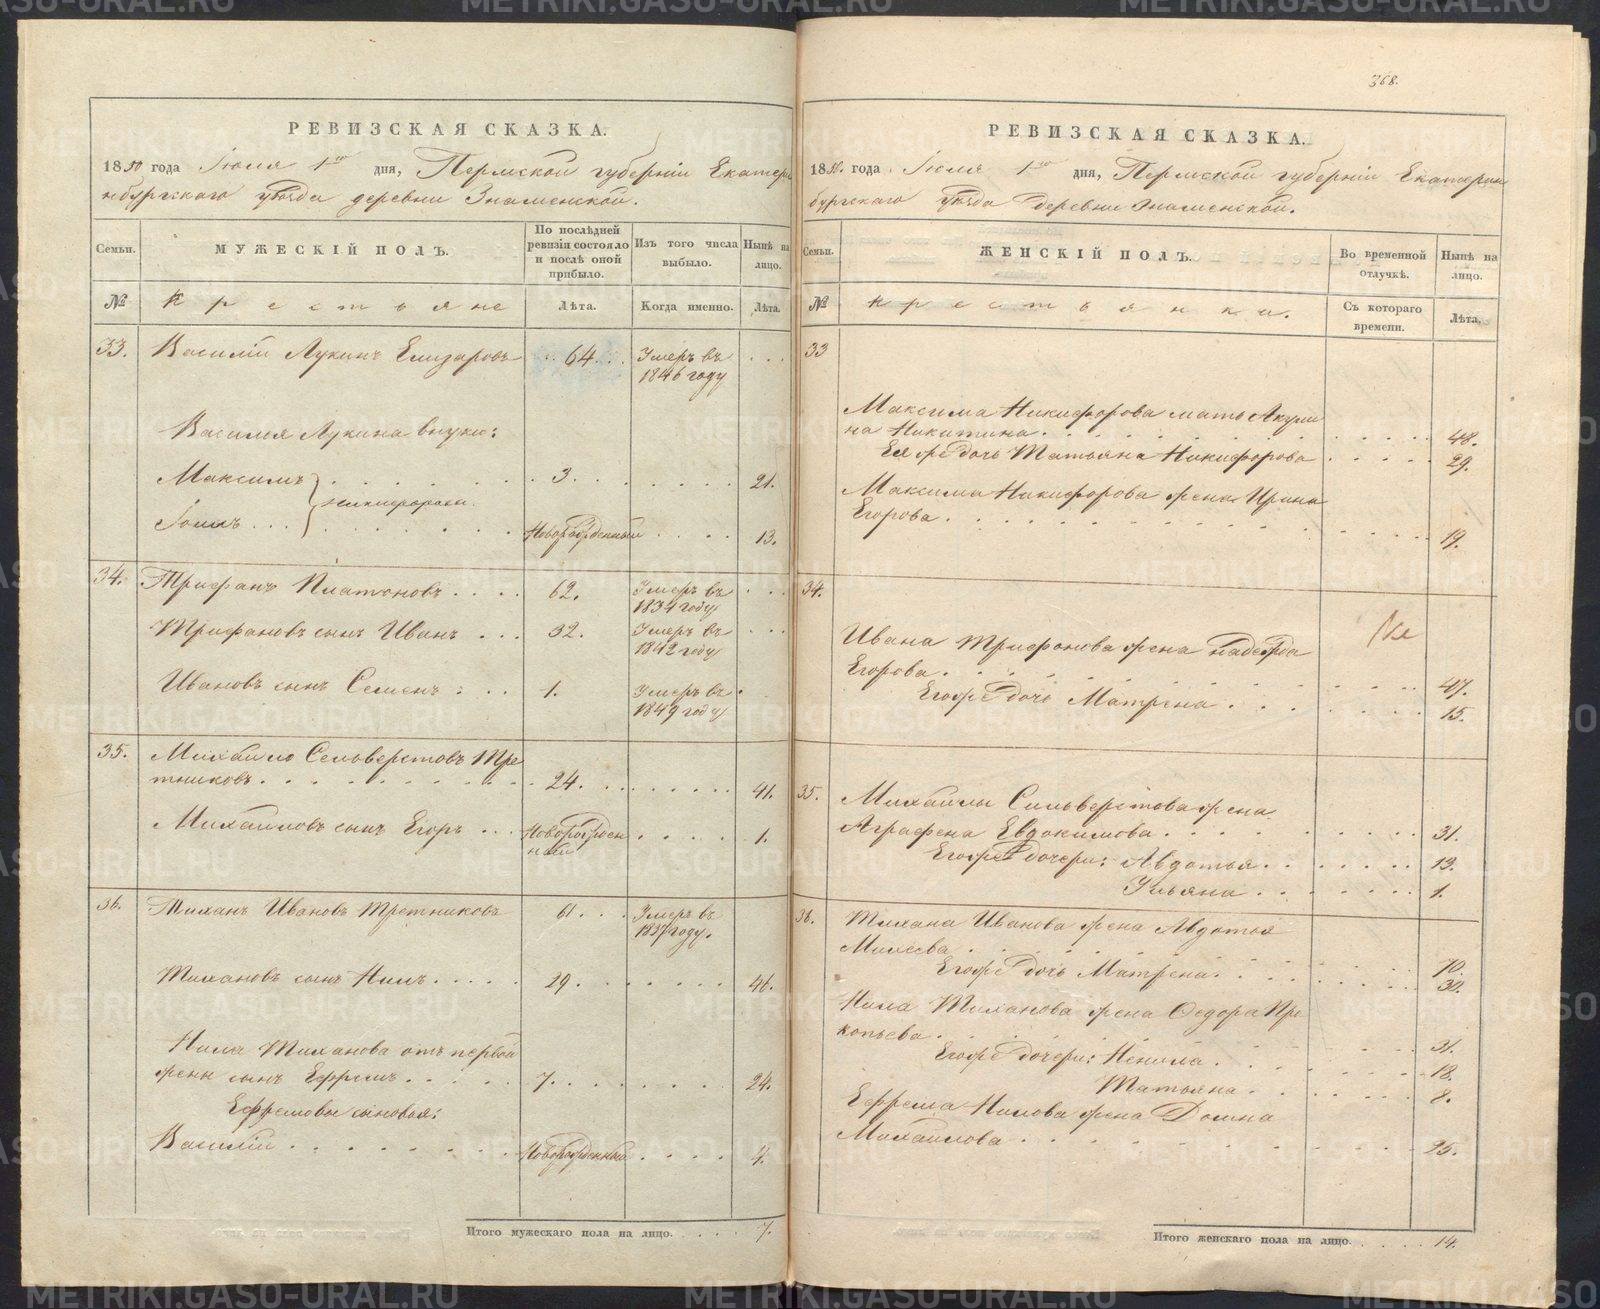 РЕВИЗСКАЯ СКАЗКА.
1850 года Июля 1го дня, Пермской губернiи Екатери
нбургскаго уѣзда деревни Знаменской.
Семьи.
МУЖЕСКIЙ ПОЛЪ.
По послѣдней ревизiи состояло и послѣ оной прибыло.
Изъ того числа выбыло.
Нынѣ на лицо.
№
Крестьяне
Лѣта.
Когда именно.
Лѣта.
33. Василiй Лукинъ Елизаровъ 64. Умеръ въ
1846 году
Василья Лукина внуки:
Максимъ 3. 21.
Никифоровы
Новорожденный 13.
34. Трифанъ Платоновъ 62. Умеръ въ
1834 году
Трифановъ сынъ Иванъ 32. Умеръ въ
1842 году
Ивановъ сынъ Семенъ 1. Умеръ въ
1849 году
35. Михайло Сельверстовъ Тре
тниковъ 24. 41.
Михайловъ сынъ Егоръ Новорожден
ный 1.
36. Тиханъ Ивановъ Третниковъ 61. Умеръ въ
1837 году.
Тихановъ сынъ Нилъ 29. 46.
Нила Тиханова отъ первой
жены сынъ Ефремъ 7. 24.
Ефремовы сыновья:
Василiй Новорожденный 4.
Итого мужескаго пола на лицо. 7.
368.
РЕВИЗСКАЯ СКАЗКА.
1850. года Июля 1го дня, Пермской губернiи Екатерин
бургскаго уѣзда деревни Знаменской.
Семьи.
ЖЕНСКIЙ ПОЛЪ.
Во временной отлучкѣ.
Нынѣ на лицо.
№
Крестьянки.
Съ котораго времени.
Лѣта.
33
Максима Никифорова мать Акули
на Никитина 48.
Ея же дочь Татьяна Никифорова 29.
Максима Никифорова жена Ирина
Егорова 19.
34.
Ивана Трифонова жена Надежда
Егорова 47.
Его же дочь Матрена 15.
35. Михайлы Сильверстова жена
Аграфена Евдокимова 31.
Его же дочери: Авдотья 13.
Ульяна 1.
36. Тихана Иванова жена Авдотья
Михеева 70.
Его же дочь Матрена 30.
Нила Тиханова жена Федора Про
копьева 31.
Его же дочери: Ненила 18.
Татьяна 8.
Ефрема Нилова жена Домна
Михайлова 25.
Итого женскаго пола на лицо. 14.
METRIKI.GASO-URAL.RU